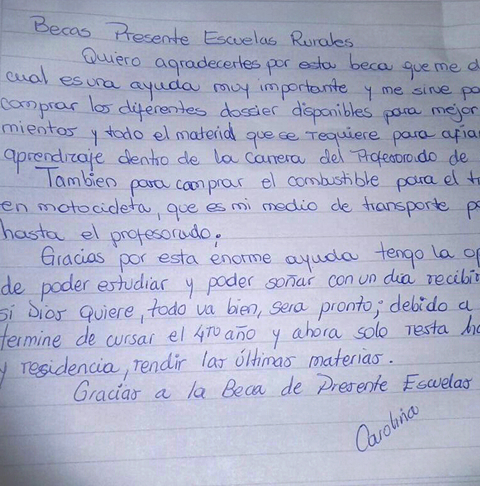 Becas Presente Escuelas Rurales
Quiero agradecerles por esta beca que me d
cual es una ayuda muy importante y me sirve pa
comprar los diferentes dossier disponibles para mejor
mientos y todo el material que se requiere para afian
aprendizaje dentro de la Carrera del Profesorado de
Tambien para comprar el combustible para el tr
en motocicleta, que es mi medio de transporte p
hasta el profesorado.
Gracias por esta enorme ayuda tengo la op
de poder estudiar y poder soñar con un dia recibir
si Dios quiere, todo va bien, sera pronto; debido a
termine de cursar el 4to año y ahora solo resta ha
y residencia, rendir las últimas materias.
Gracias a la Beca de Presente Escuelas
Carolina